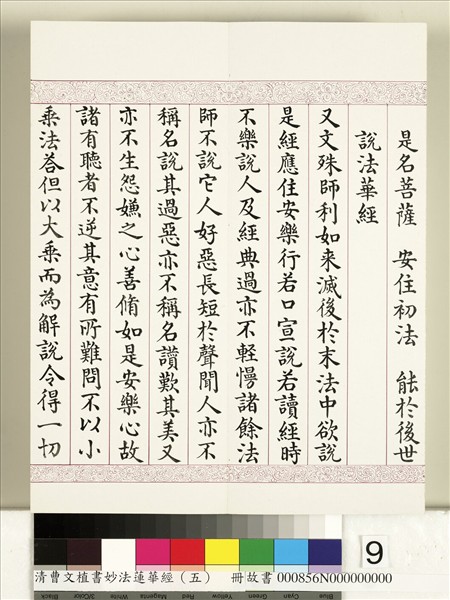 是名菩薩　安住初法　能於後世
說法華經
又文殊師利如来滅後於末法中欲說
是經應住安樂行若口宣說若讀經時
不樂說人及經典過亦不輕慢諸餘法
師不說它人好惡長短於聲聞人亦不
稱名說其過惡亦不稱名讚歎其美又
亦不生怨嫌之心善脩如是安樂心故
諸有聽者不逆其意有所難問不以小
乘法荅但以大乘而為解說令得一切
9
清曹文植書妙法蓮華經（五）　冊故書 000856N000000000
Black 3/Color White Magenta Red Yellow Green Cyan Blue